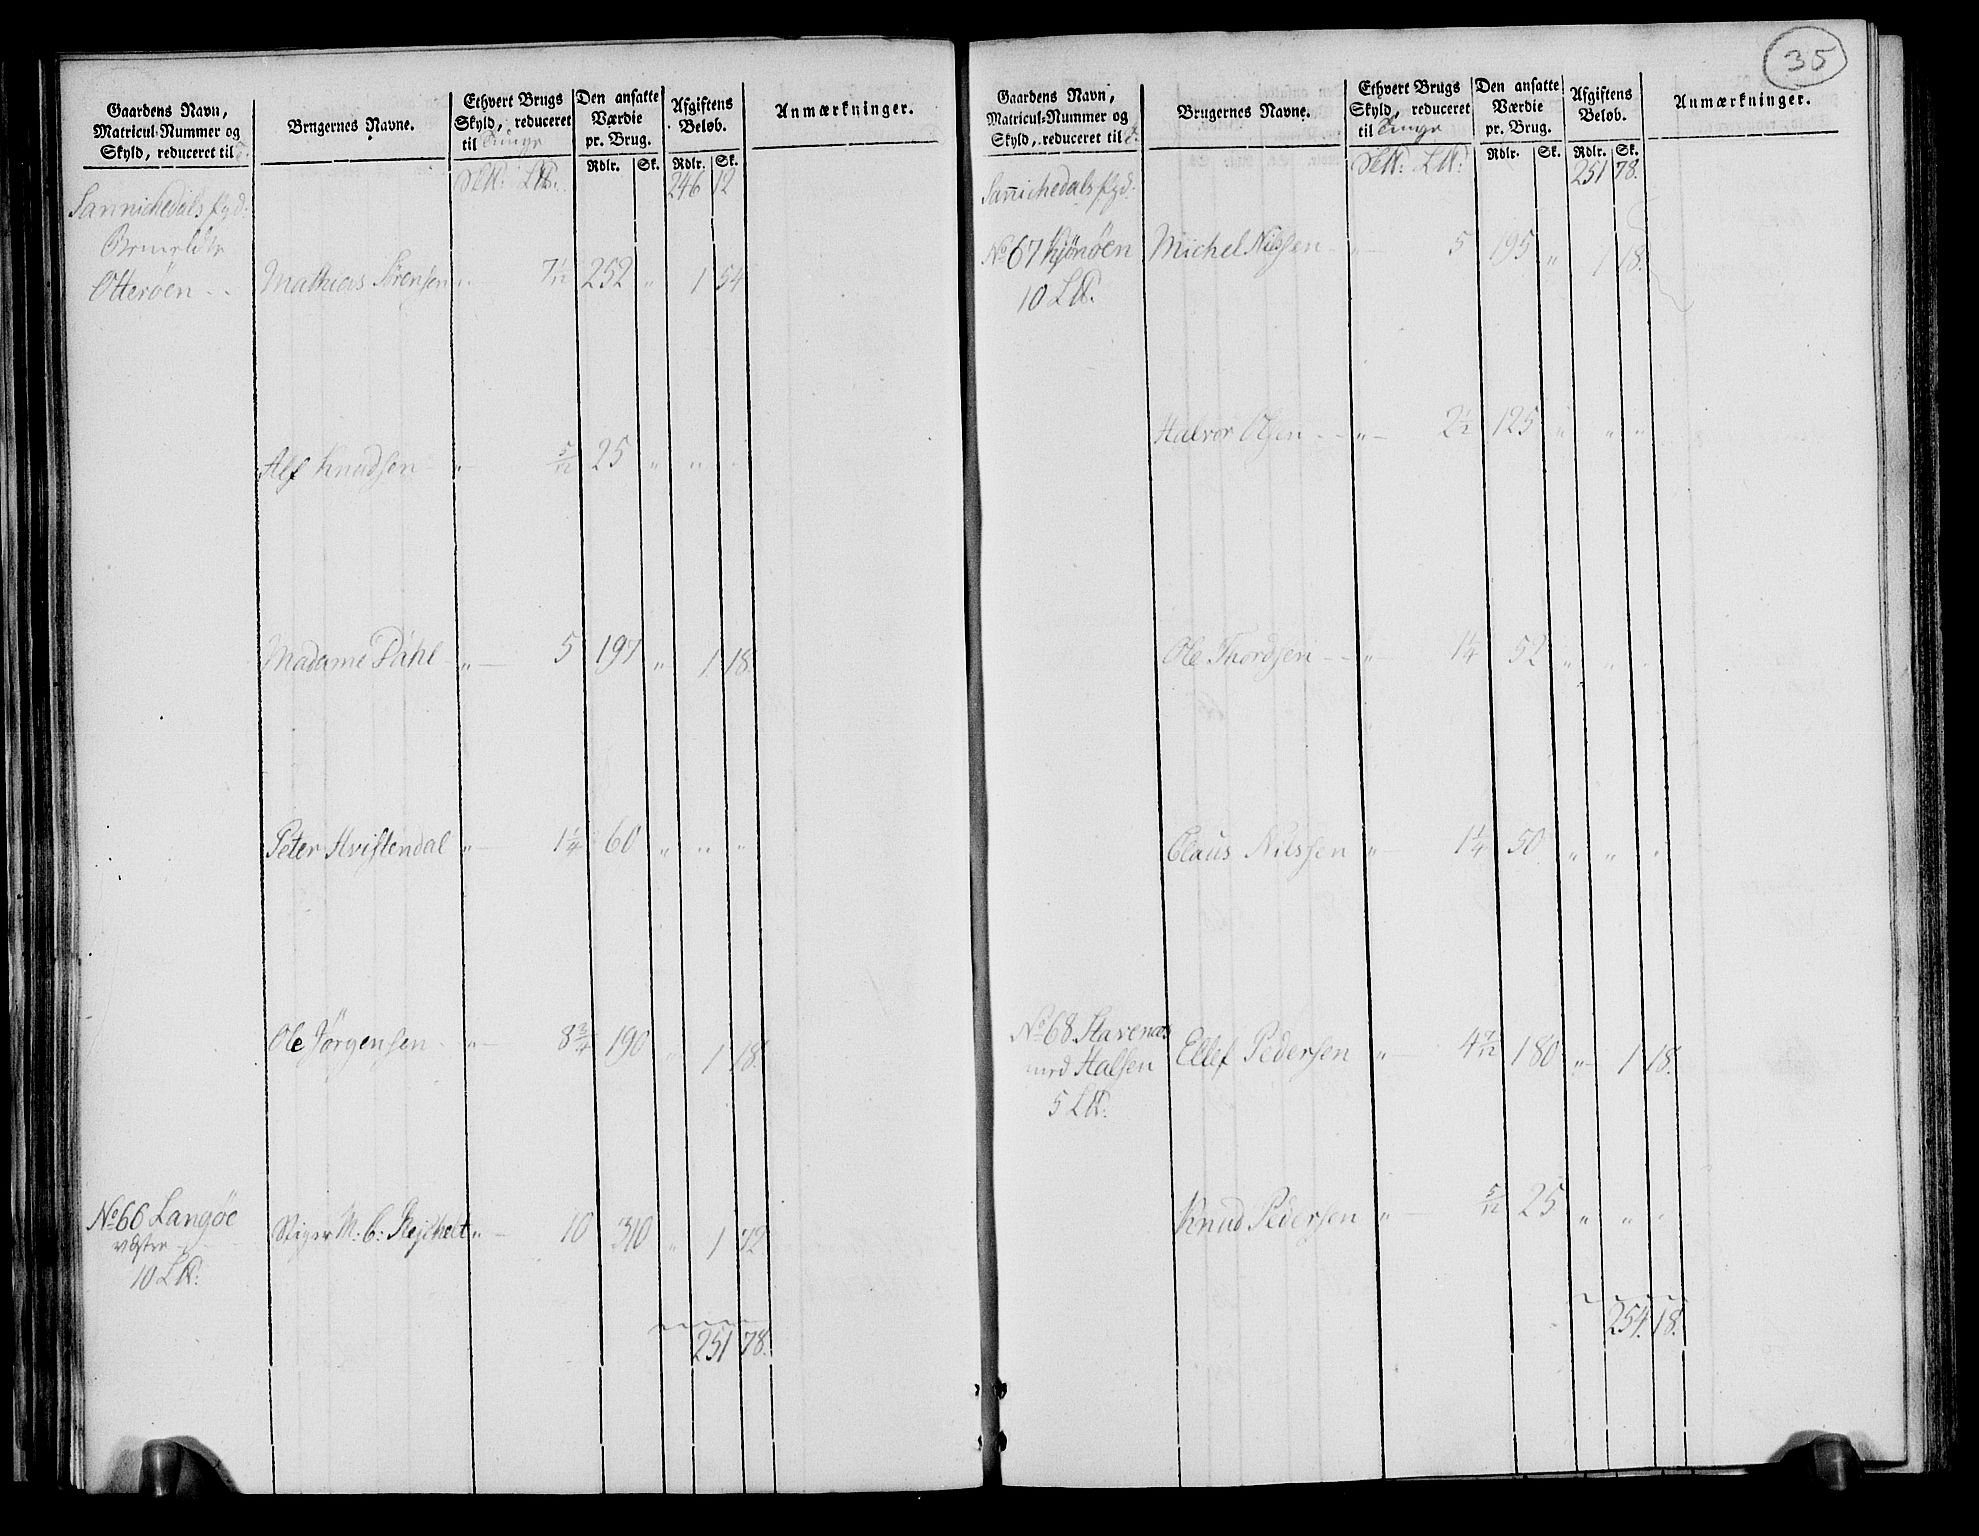 Gaardens Navn,
Matricul-Nummer og
Skyld, reduceret til
Brugernes Navne.
Ethvert Brugs
Skyld, reduceret
til Tunge
Den ansatte
Værdie
pr. Brug.
Afgiftens
Beløb.
Anmærkninger.
Rdlr. Sk. Rdlr. Sk.
246 12
Sannichedals
Otterøen
Mathias Sørensen " 7 1/12 252 " 1 54
Alf Knudsen " 5/12 25 " " "
Madame Dahl " 5 197 " 1 18
Peter Hvistendal " 1 1/4 60 " " "
Ole Jørgensen " 8 3/4 190 " 1 18.
No 66 Langøe
vestre
10 L℔.
M. C: " 10 310 " 1 72
251 78.
35
Gaardens Navn,
Matricul-Nummer og
Skyld, reduceret til
Brugernes Navne.
Ethvert Brugs
Skyld, reduceret
til Tunge
Den ansatte
Værdie
pr. Brug.
Afgiftens
Beløb.
Anmærkninger.
Rdlr. Sk. Rdlr. Sk.
251 78.
Sannichedals
No 67 Kjönöen
10 L℔.
Michel Nilssen " 5 195 " 1 18.
Halvor Olsen " 2 1/2 125 " " "
Ole Thordsen " 1 1/4 52 " " "
Claus Nilssen " 1 1/4 50 " " "
No 68 Stavenæs
med Halsen
5 L℔.
Ellef Pedersen " 4 7/12 180 " 1 18.
Knud Pedersen " 5/12 25 " " "
254. 18.